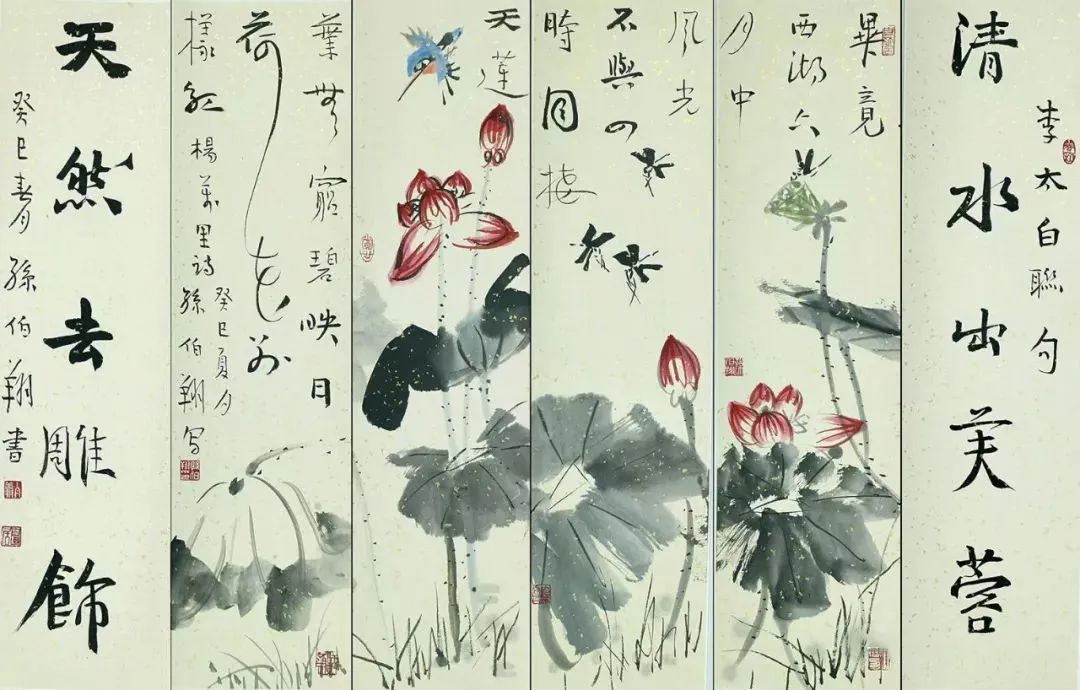 李太白聯句
清水出芙蓉
畢竟
西湖六
月中
風光
不與四
時同接
天蓮
葉無窮碧映日
荷花別
樣紅 楊萬里詩
癸巳夏月
孫伯翔寫
天然去雕飾
癸巳春月 孫伯翔書